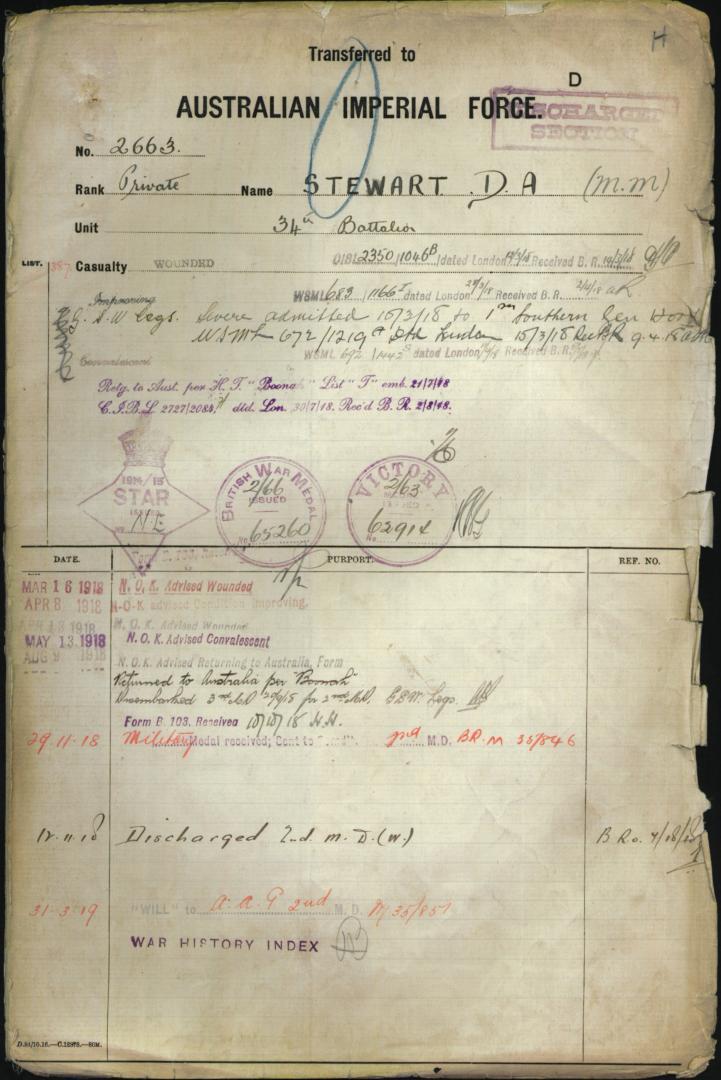 H
Transferred to
D
AUSTRALIAN IMPERIAL FORCE.
DISCHARGED
SECTION
No. 2663.
Rank Private Name STEWART D.A (M.M)
Unit 34th Battalion
LIST. 387 Casualty WOUNDED CABL 2350/1046B dated London Received B. R.
WSML 683 1166 dated London Received B. R. 2/4/18
Improving
S.W Legs. Severe admitted 15/3/18 to 1st Southern Gen Hosp
WSML 672/1219 Dtd London 15/3/18
Convalescent WSML 692 1442 dated London Received B.R.
Retg. to Aust. per H. T. "Boonah" List "T" emb. 21/7/18
C.I.B.L 2727/2084, dtd. Lon. 30/7/18. Rec'd B. R. 2/8/18.
1914/15
STAR
ISSUED
No N.E
BRITISH WAR MEDAL
2/66
ISSUED
No. 65260
VICTORY
2/63
No. 62914
DATE. PURPORT. REF. NO.
MAR 16 1918 N. O. K. Advised Wounded
APR 8 1918 N-O-K advised Condition Improving.
1918 N. O. K. Advised Wounded
MAY 13.1918 N.O.K. Advised Convalescent
AUG 9 1918 N.O.K. Advised Returning to Australia, Form
Returned to Australia per "Boonah"
Disembarked 3rd M.D 20/9/18 for 2nd M.D. G.S.W. Legs.
Form B. 103, Received 10/10/18 H.H.
29.11.18 Military Medal received; Sent to 2nd M.D. BR.M 35/846
12.11.18 Discharged 2nd. M.D. (W.)
31-3-19 "WILL" to A.A.G 2nd M. D. M35/851
WAR HISTORY INDEX
D.84/10.16.—C.12873.—50M.